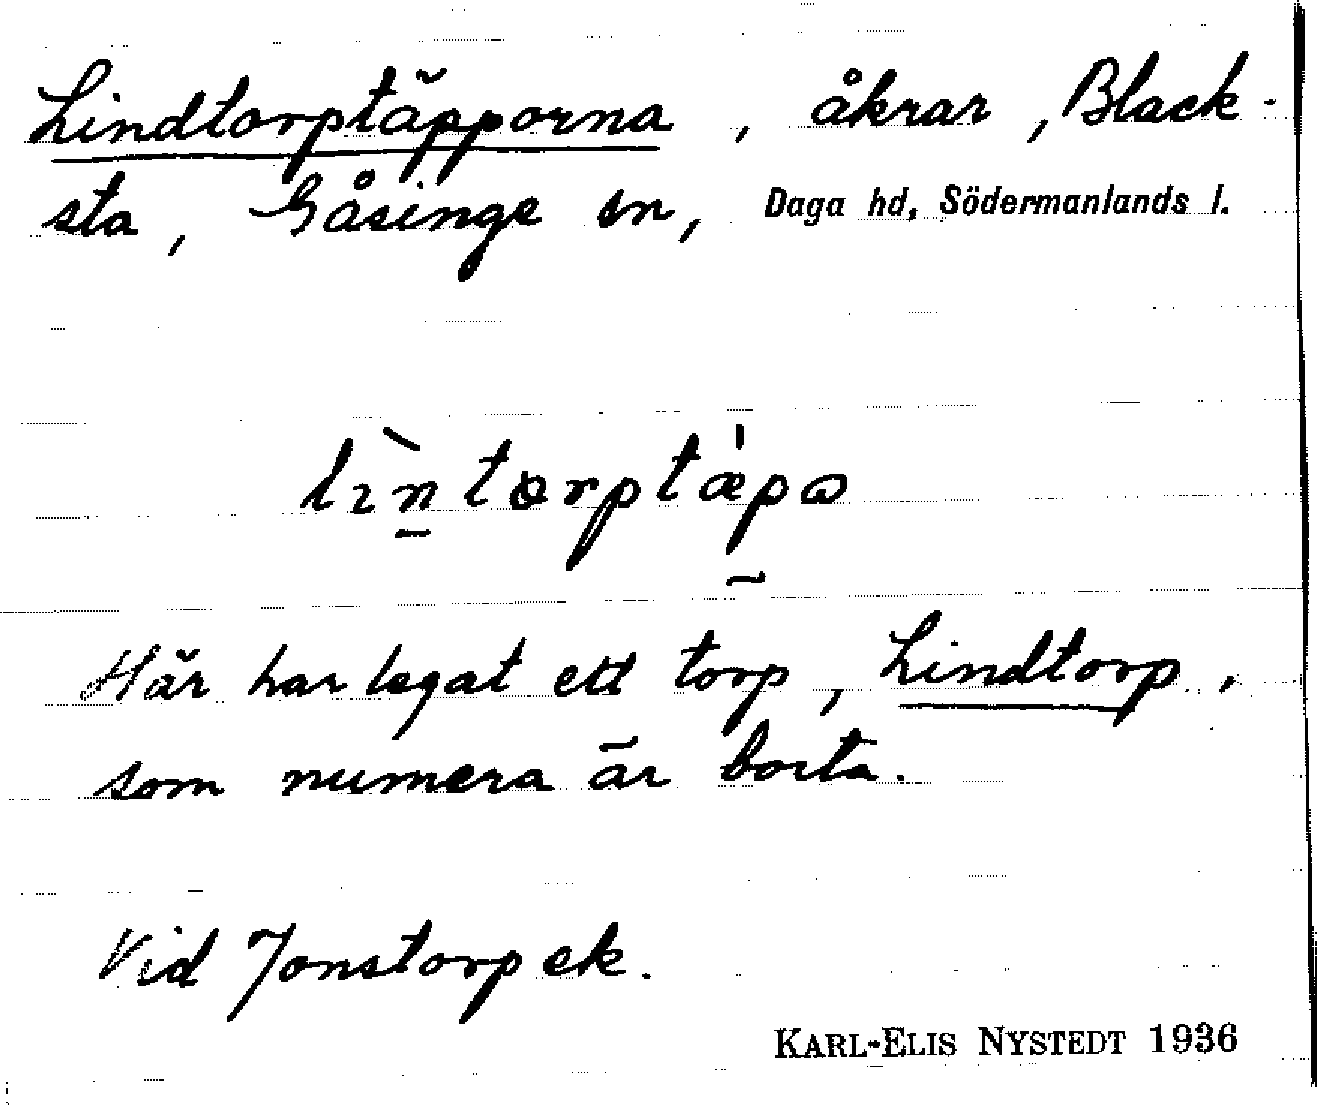 Lindtorptäpporna, åkrar, Black-
sta, Gåsinge sn, Daga hd, Södermanlands l.
lìn̠tɵrptæ̍pa
Här har legat ett torp, Lindtorp,
som numera är borta.
Vid Jonstorp ek.
KARL-ELIS NYSTEDT 1936